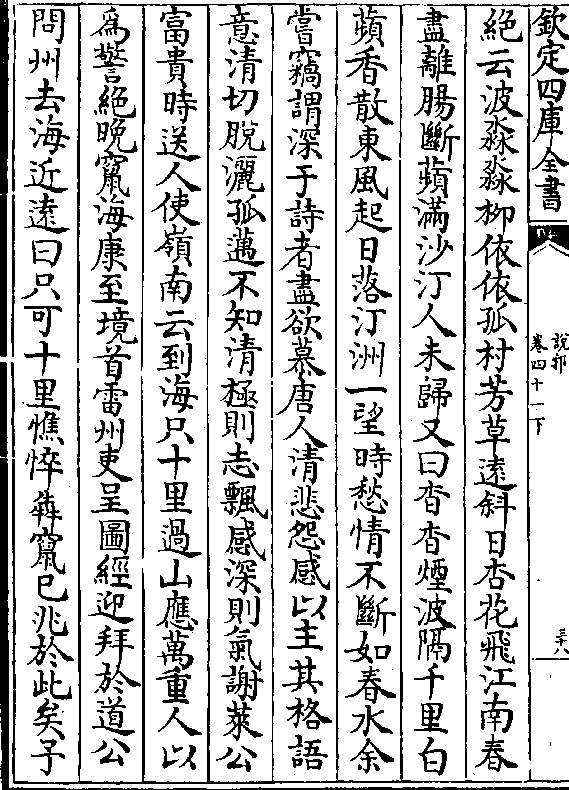 欽定四庫全書
說郛
卷四十一下
絶云波淼淼柳依依孤村芳草逺斜日杏花飛江南春
盡離腸斷蘋滿沙汀人未歸又曰杳杳煙波隔千里白
蘋香散東風起日落汀洲一望時愁情不斷如春水余
嘗竊謂深于詩者盡欲慕唐人清悲怨感以主其格語
意清切脫灑孤邁不知清極則志飄感深則氣謝萊公
富貴時送人使嶺南云到海只十里過山應萬重人以
為警絶晚竄海康至境首雷州吏呈圖經迎拜於道公
問州去海近逺曰只可十里憔悴犇竄已兆於此矣予